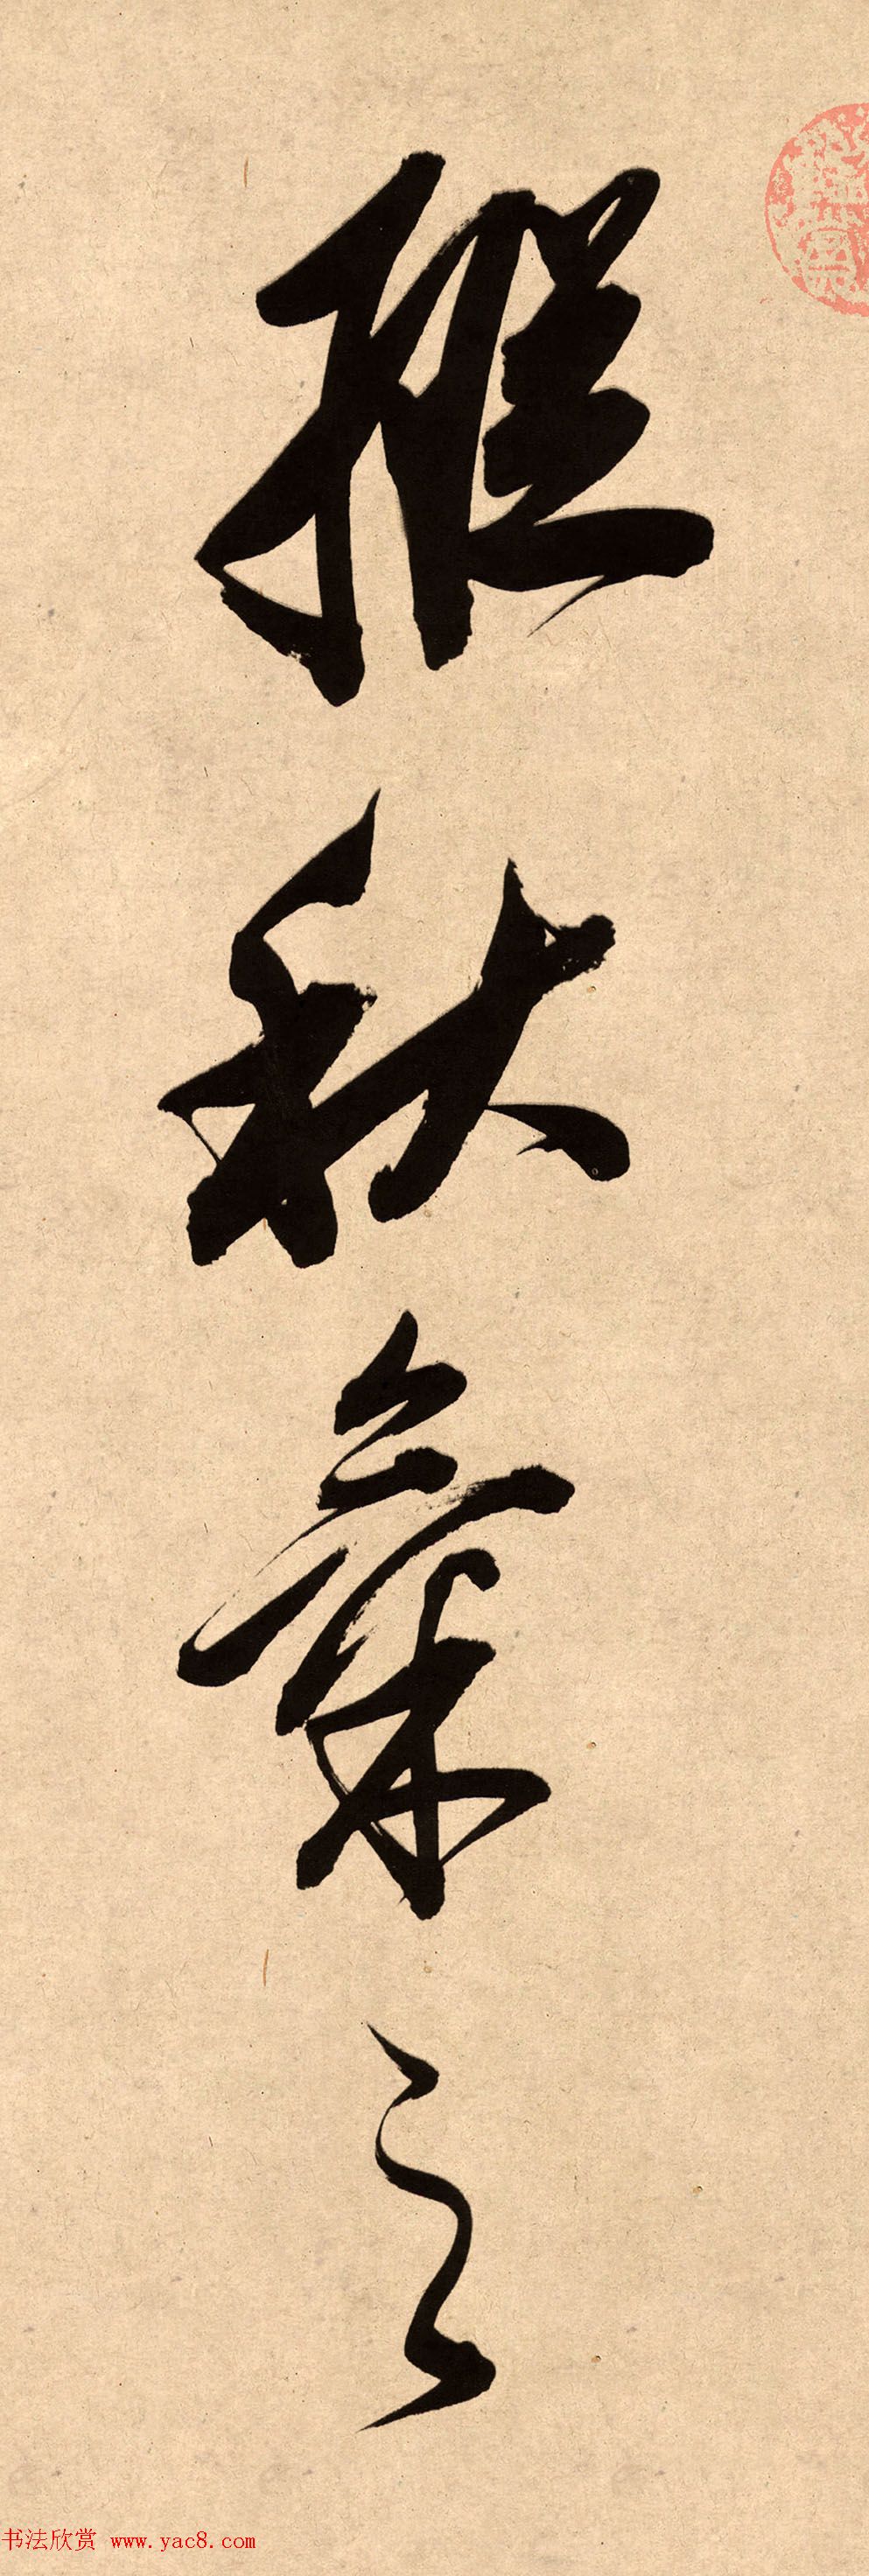 推秋氣之
书法欣赏 www.yac8.com